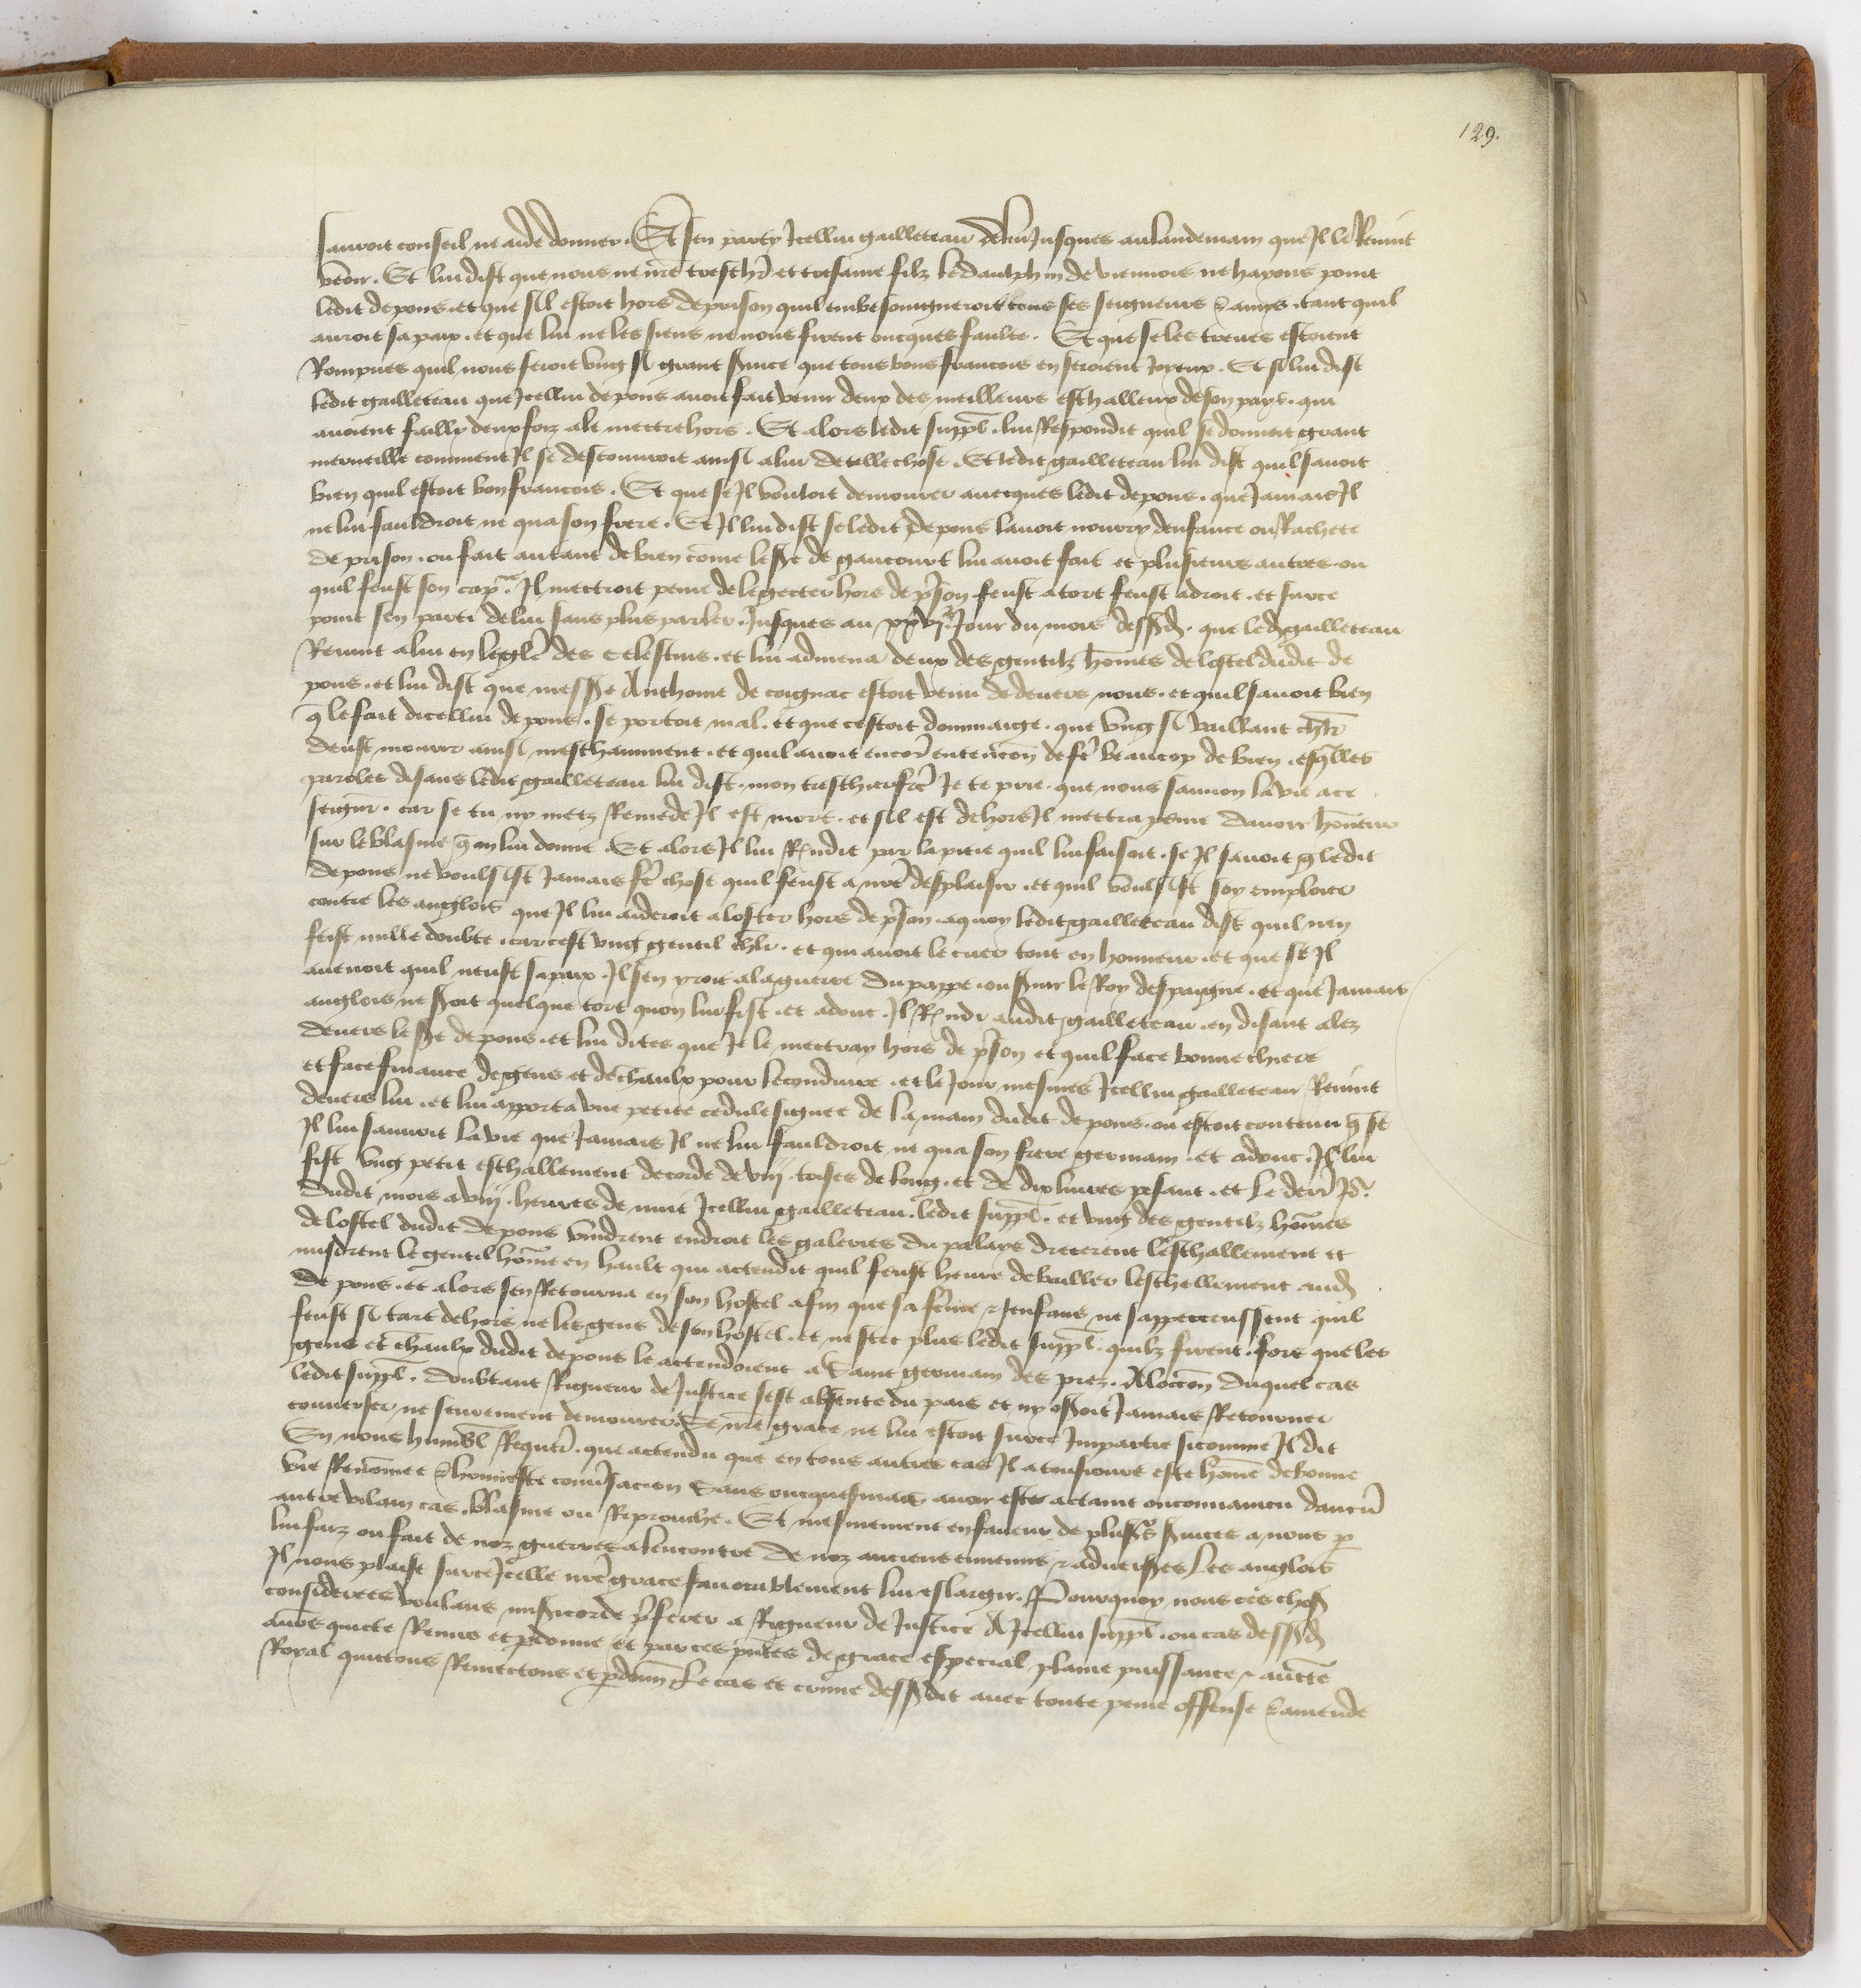 129.
sauroit conseil ne aide donner. Et sen party Icellui gailleteau delui Jusques aulandemain que Il le Revint
veoir. Et lui dist que nous ne nr̃e treschr̃ et tresame filz le daulphin de viennois ne hayons point
ledit de pons. et que sil estoit hors de prison quil embesoingneroit tous ses seigneurs & amys. tant quil
auroit sa paix. et que lui ne les siens ne nous firent oncques faulte. Et que se les treves estoient
Rompues quil nous feroit ung si grant svice que tous bons francois en seroient Joyeux. Et si lui dist
ledit gailleteau que Icellui de pons avoit fait venir deux des meilleurs eschalleux de son pays. qui
avoient failly deux foiz ale mectre hors. Et alors ledit suppl̃. lui Respondit quil se donnoit grant
merveille comment Il se descouvroit ainsi a lui de telle chose. Et ledit gailleteau lui dist quil savoit
bien quil estoit bon francois. Et que se Il vouloit demourer avecques ledit de pons. que Jamais Il
ne lui fauldroit ne qua son frere. Et Il lui dist se ledit de pons lavoit nourry denfance ou Rachete
de prison. ou fait autant de bien com̃e le sr̃ de gaucourt lui avoit fait et plusieurs autres. ou
quil feust son cap̃ne. Il mectroit peine de le gecter hors de pr̃son feust a tort feust adroit. et surce
point sen parti de lui sans plus parler. Jusques au xxvje Jour du mois dessd̃. que led̃ gailleteau
Revint a lui en leglĩ des celestins. et lui admena deux des gentilz hom̃es de lostel dudit de
pons. et lui dist que messr̃e Anthoine de coignac estoit venu de devers nous. et quil savoit bien
q̃ le fait dicellui de pons. se portoit mal. et que cestoit dommaige. que ung si vaillant chl̃r
deust mourir ainsi meschamment. et quil avoit encor̃ entencion de fr̃ beaucop de bien. esq̃lles
paroles disans ledit gailleteau lui dist. mon treschierfr̃e Je te prie. que nous sauvon la vie a ce
seign̄r. car se tu ny metz Remede Il est mort. et sil est dehors Il mectra peine davoir hon̄eur
sur le blasme q̃ on lui donne. Et alors Il lui R̃ndit par la pitie quil lui faisoit. se Il savoit q̃ ledit
de pons ne voulsist Jamais fr̃ chose quil feust a nr̃e desplaisir. et quil voulsist soy emploier
contre les anglois que Il lui aideroit a loster hors de pr̃son. aquoy ledit gailleteau dist quil nen
feist nulle doubte. car cest ung gentil chl̃r. et qui avoit le cuer tout en honneur. et que se Il
avenoit quil neust sa paix. Il sen yroit ala guerre du pappe. ou svir le Roy despaigne. et que Jamais
anglois ne soit quelque tort quon lui fist. et adonc. Il R̃ndi audit gailleteau. en disant alez
devers le sr̃e de pons. et lui dites que Je le mectray hors de pr̃son et quil face bonne chiere
et face finance de gens et de chaulx pour le conduire. et le Jour mesmes Icellui gailleteau Revint
devers lui. et lui apporta une petite cedule signee de la main dudit de pons. ou estoit contenu q̃ se
Il lui sauvoit la vie que Jamais Il ne lui fauldroit ne qua son frere germain. et adonc. Il lui
fist ung petit eschallement de corde de viij toises de long. et de dix livres pesant. et le derr̃ Jor
dudit mois a viij. heures de nuit Icellui gailleteau. ledit suppl̃. et ung des gentilz hom̃es
de lostel dudit de pons vindrent endroit les galeries du palays drecerent leschallement et
misdrent le gentil hom̃e en hault qui actendit quil feust heure de bailler leschellement aud̃
de pons. et alors sen Retourna en son hostel afin que sa fem̃e & enfans ne sapperceussent quil
feust si tart dehors ne les gens de son hostel. et ne scet plus ledit suppl̃. quilz firent. fors que les
gens et chaulx dudit de pons le actendoient a Saint germain des prez. Aloccon̄ duquel cas
ledit suppl̃. doubtant Rigueur de Justice sest absente du pais et ny oseroit Jamais Retourner
converser ne seurement demourer. Se nr̃e grace ne lui estoit surce Impartie sicomme Il dit
En nous humbl̃. Requer̃. que actendu que en tous autres cas Il a tousiours este hom̃e de bonne
vie Renom̃ee & honneste conv̄sacion Sans oncquesmais avoir este actaint ou convaincu daucũ
autre vilain cas. blasme ou Reprouche. Et mesmement en faveur de plusr̃s services a nous p̃
lui faiz ou fait de noz guerres alencontre de noz anciens ennemis & adversr̃es Les anglois
Il nous plaise surce Icelle nr̃e grace favorablement lui eslargir. Pourquoy nous ces chos̃
considerees voulans mis̃icorde p̃ferer a Rigueur de Justice A Icellui suppl̃. ou cas dessd̃
avons quicte Remis et p̃donne et par ces pn̄tes de grace especial plaine puissance & aucte
Royal quictons Remectons et p̃donn̄. Le cas et crime dess̃dit avec toute peine offense & amende